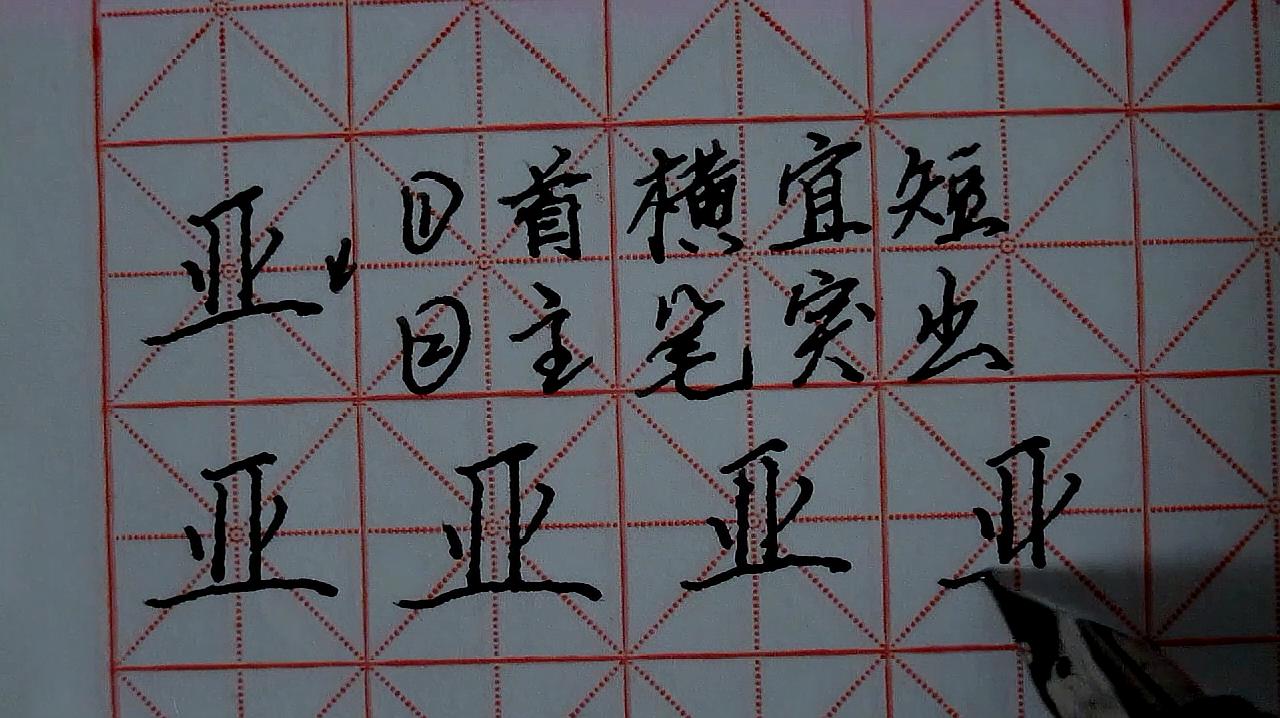 亚 ①首横宜短
②主笔突出
亚 亚 亚 亚